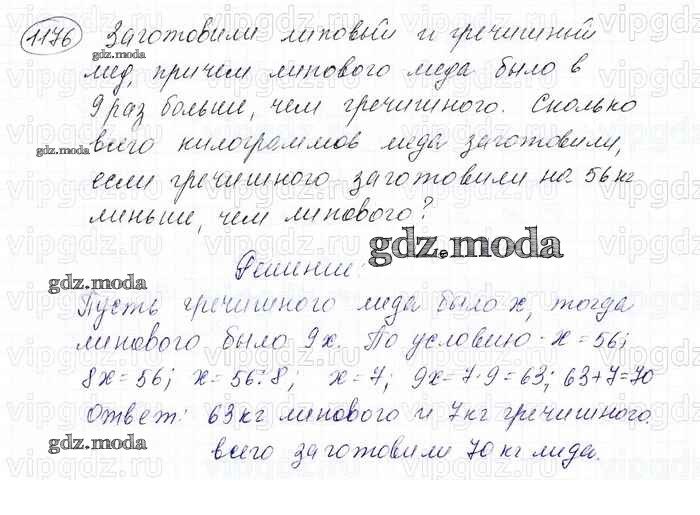 1176 Заготовили липовый и гречишный
gdz.moda
мед, причем липового меда было в
9 раз больше, чем гречишного. Сколько
gdz.moda всего килограммов меда заготовили,
если гречишного заготовили на 56 кг
меньше, чем липового?
gdz.moda
Решение:
gdz.moda
Пусть гречишного меда было x, тогда
липового было 9x. По условию - x = 56;
8x = 56; x = 56:8; x = 7; 9x = 7·9 = 63; 63+7=70
Ответ: 63 кг липового и 7 кг гречишного.
gdz.moda всего заготовили 70 кг меда.
vipgdz.ru